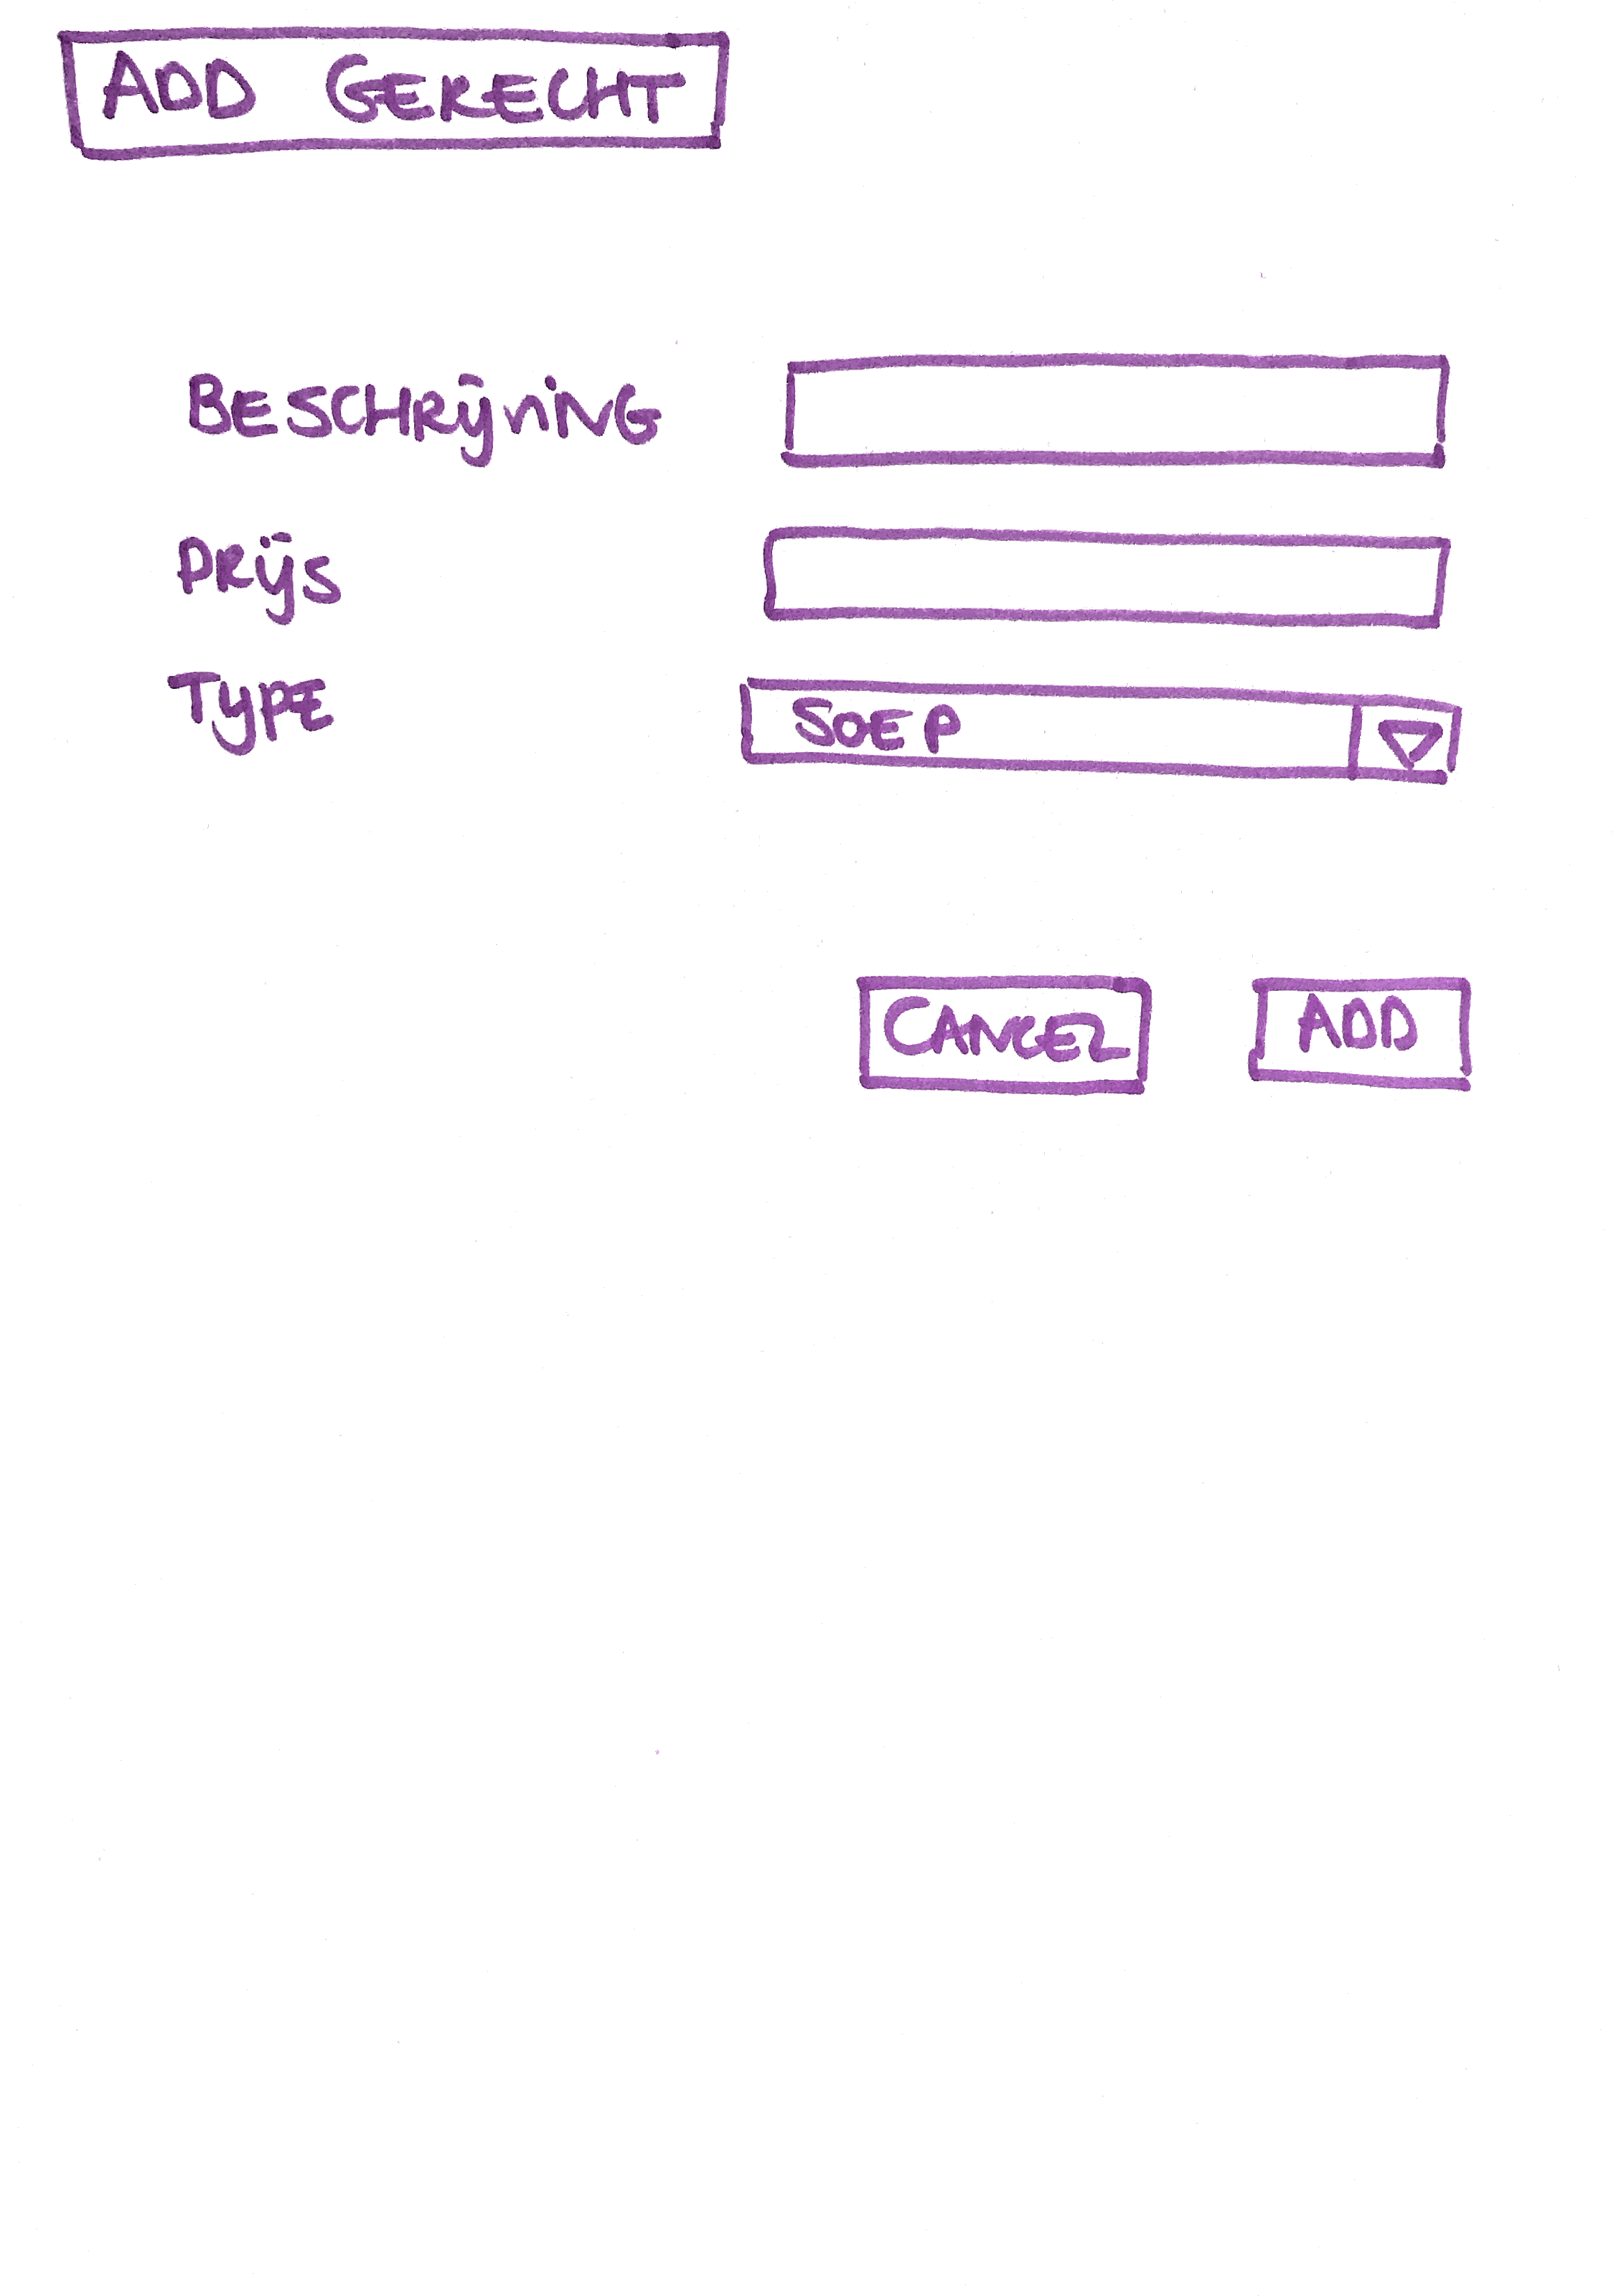 ADD GERECHT
BESCHRijviNG
PRijS
TyPE
SOEP
CANCEL
ADD